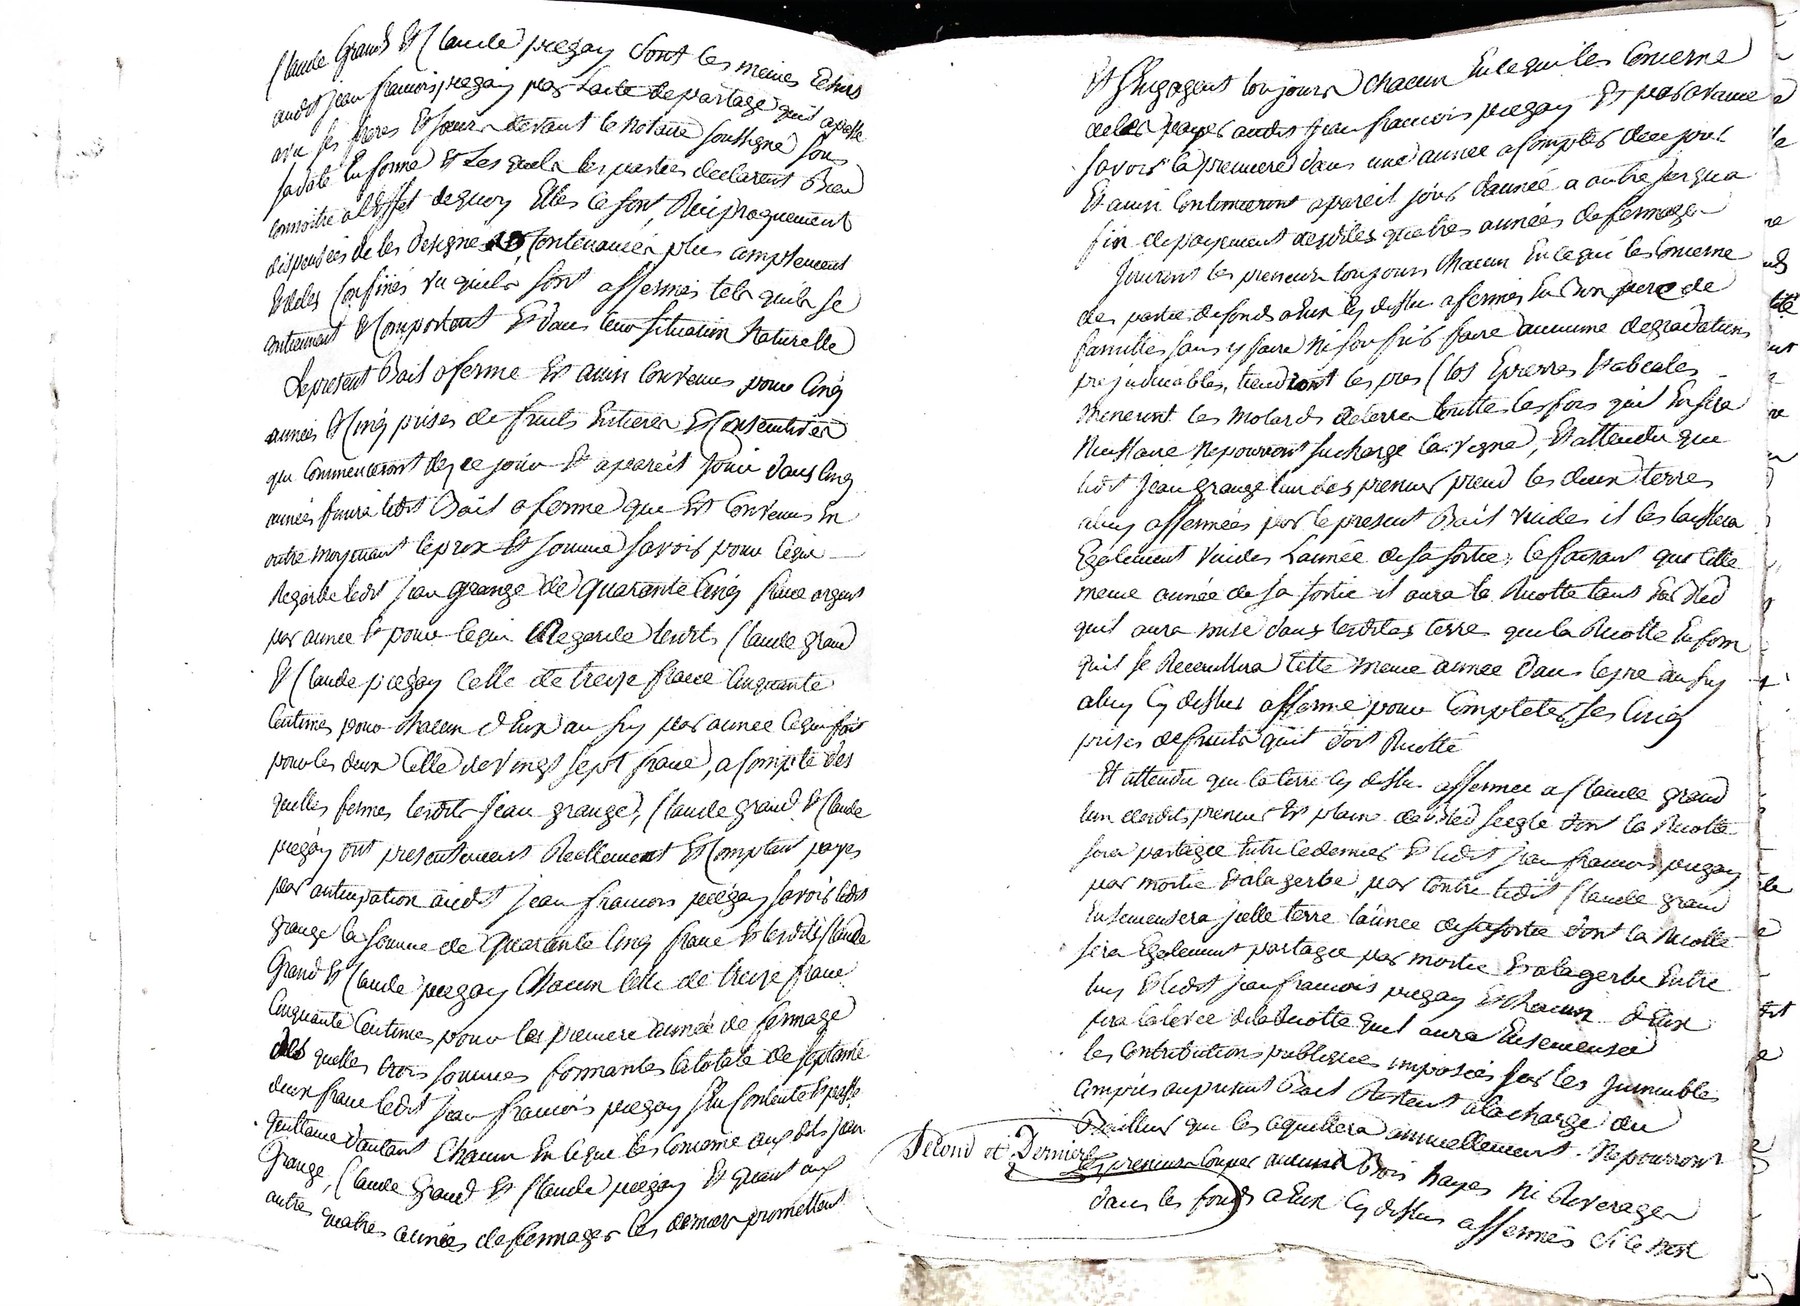 Claude Grand et Claude pregay sont les meines Echus
audit jean francois pregay par Lacte de partage quil a passé
avec ses freres Et soeurs devant le notaire soussigné sous
sa date En forme Et Les quels les parties declarent Bien
connoitre a l'Effet de quoy Elles se sont Reciproquement
dispensées de les designer Contenances plus amplement
Et de les Confinés vu quils sont affermés tels quils se
contiennent Et Comportent Et dans leur situation Naturelle
Le present Bail a ferme Est ainsi Convenus pour Cinq
années Et Cinq prises de fruits Entieres Et Consecutives
qui Commenceront des ce jour Et a pareil jour dans Cinq
années finira ledit Bail a ferme que Est Convenus En
outre moyenant le prix Et somme savoir pour ce qui
Regarde ledit jean grange de Quarante Cinq franc argent
par année Et pour ce qui Regarde lesdits Claude grand
Et Claude pregay Celle de treize franc Cinquante
Centimes pour chacun d'Eux aussy par année ce qui fait
pour les deux Celle de vingt sept franc, a Compte des
quelles fermes lesdits Jean grange, Claude grand Et Claude
pregay ont presentement Reellement Et Comptant payés
par anticipation audit jean francois pregay savoir ledit
grange la somme de Quarante Cinq franc Et lesdits Claude
Grand Et Claude pregay Chacun Celle de treize franc
Cinquante Centimes pour la premiere année de fermage
des quelles trois sommes formantes la totale de septante
deux franc ledit jean francois pregay s'En Contente Et passe
quittance d'autant Chacun En ce que les Concerne aux dits jean
Grange, Claude Grand Et Claude pregay Et quant aux
autres quatres années de fermages les deniers promettent
Et S'Engagent toujours Chacun En ce qui les Concerne
de les payer audit jean francois pregay Et par avance
savoir la premiere dans une année a Compter de ce jour
Et ainsi Continueront a pareil jour d'année a autre jusqu'a
fin de payement desdites quatres années de fermages
Jouiront les preneurs toujours Chacun En ce qui les Concerne
des parties de fonds a Eux Cy dessus afermés En Bon pere de
familles sans y faire ni souffrir faire aucune degradations
prejudiciables, tiendront les pres Clos Epierres Et abeales
meneront les molards de terre touttes les fois quil En sera
Necessaire Ne pourront surcharge la vigne, Et attendu que
ledit Jean grange l'un des preneur prend les deux terres
a luy affermées par le present Bail vuides il les laissera
Egalement vuides L'année de sa sortie; le faisant que Cette
meme année de sa sortie il aura la Recolte tant En Bled
quil aura semé dans lesdites terres que la Recolte En foin
quil se Receuillira Cette meme année dans le pre aussy
a luy Cy dessus afferme pour Completer ses Cinq
prises de fruits quil doit Recolté
Et attendu que la terre Cy dessus affermee a Claude grand
l'un desdits preneur Est plaine de Bled seigle dont la Recolte
sera partagée Entre ce dernier Et ledit jean francois pregay
par moitie Et a la gerbe, par Contre ledit Claude grand
Ensemensera jcelle terre l'année de sa sortie dont la Recolte
sera Egalement partagée par moitie Et a la gerbe Entre
luy Et ledit jean francois pregay Et Chacun d'Eux
fera la levée de la Recolte quil aura Ensemensée
les Contributions publiques imposées sur les Jmmeubles
compris au present Bail Restent a la charge du
Bailleur qui les aquittera annuellement. Ne pourront
Second et Dernier
les preneurs Couper aucuns Bois hayes Ni Riverages
dans les fonds a Eux Cy dessus affermés Si ce n'est